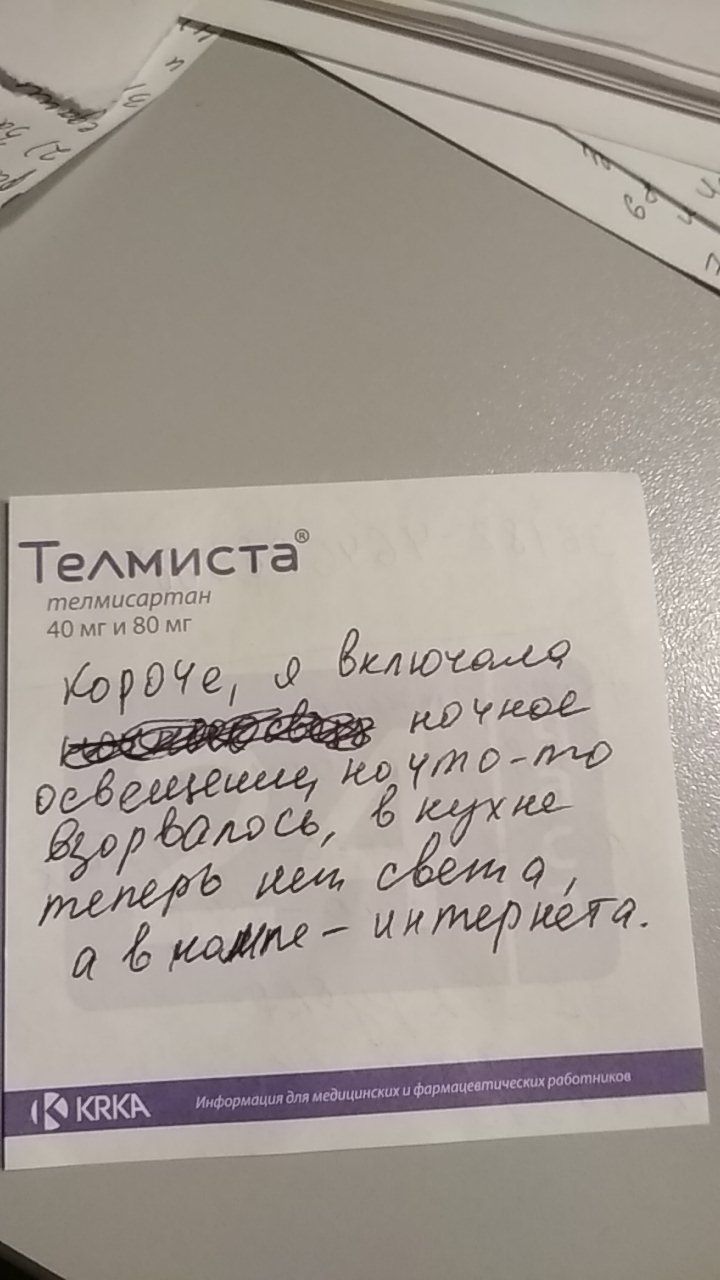 Телмиста®
телмисартан
40 мг и 80 мг
Короче, я включала
ночное
освещение, но что-то
взорвалось, в кухне
теперь нет света,
а в компе - интернета.
KRKA Информация для медицинских и фармацевтических работников